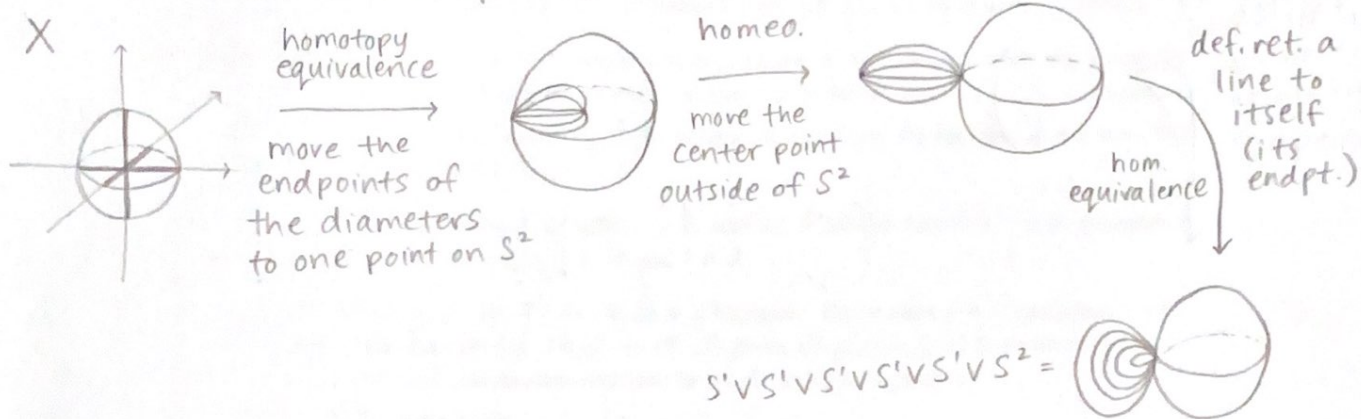 X
homotopy
equivalence
move the
endpoints of
the diameters
to one point on S²
homeo.
move the
center point
outside of S²
def. ret. a
line to
itself
(its
endpt.)
hom.
equivalence
S'∨S'∨S'∨S'∨S'∨S² =